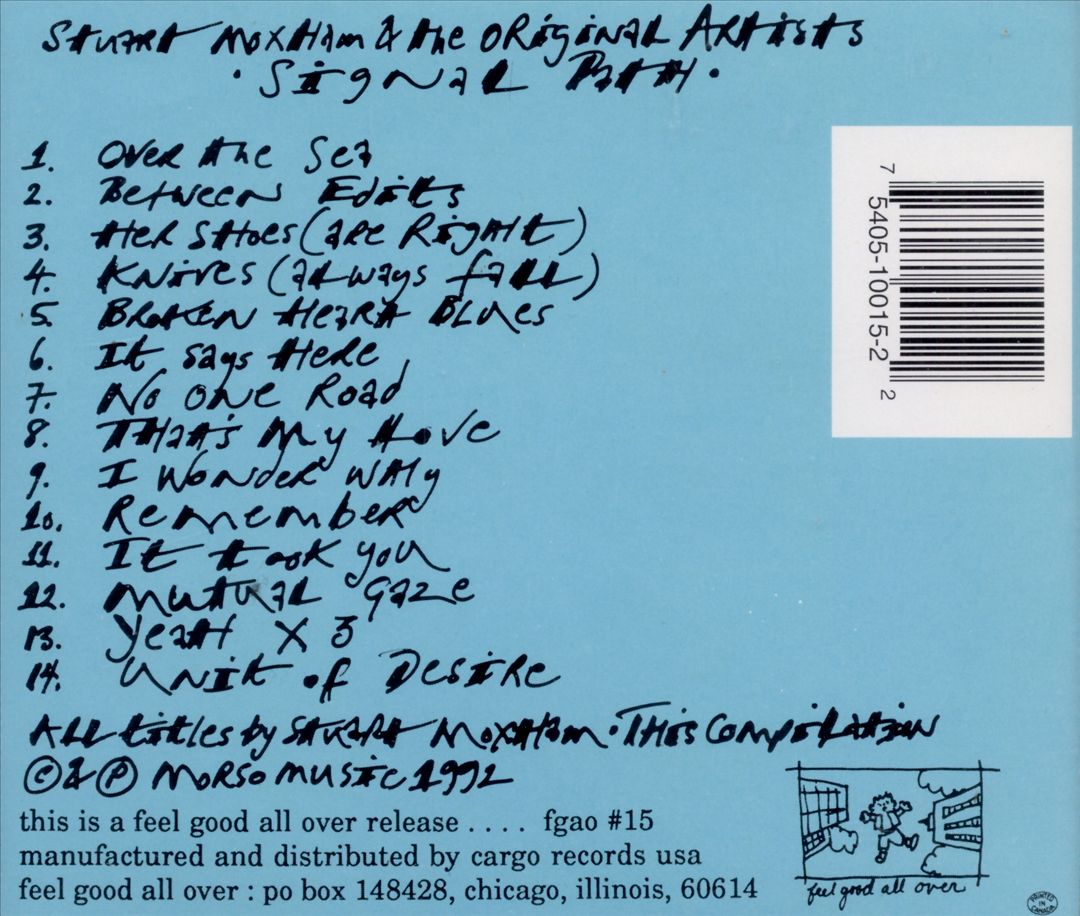 Stuart Moxham & the original Artists
· Signal Path ·
1. Over the Sea
2. Between Edits
3. Her Shoes (are Right)
4. Knives (always fall)
5. Broken Heart Blues
6. It says Here
7. No One Road
8. That's My Love
9. I Wonder Why
10. Remember
11. It took you
12. Mutual Gaze
13. Yeah X 3
14. Unit of Desire
All titles by Stuart Moxham · This Compilation
© & ℗ Morso Music 1992
this is a feel good all over release .... fgao #15
manufactured and distributed by cargo records usa
feel good all over : po box 148428, chicago, illinois, 60614
7 5405-10015-2 2
feel good all over
PRINTED IN CANADA